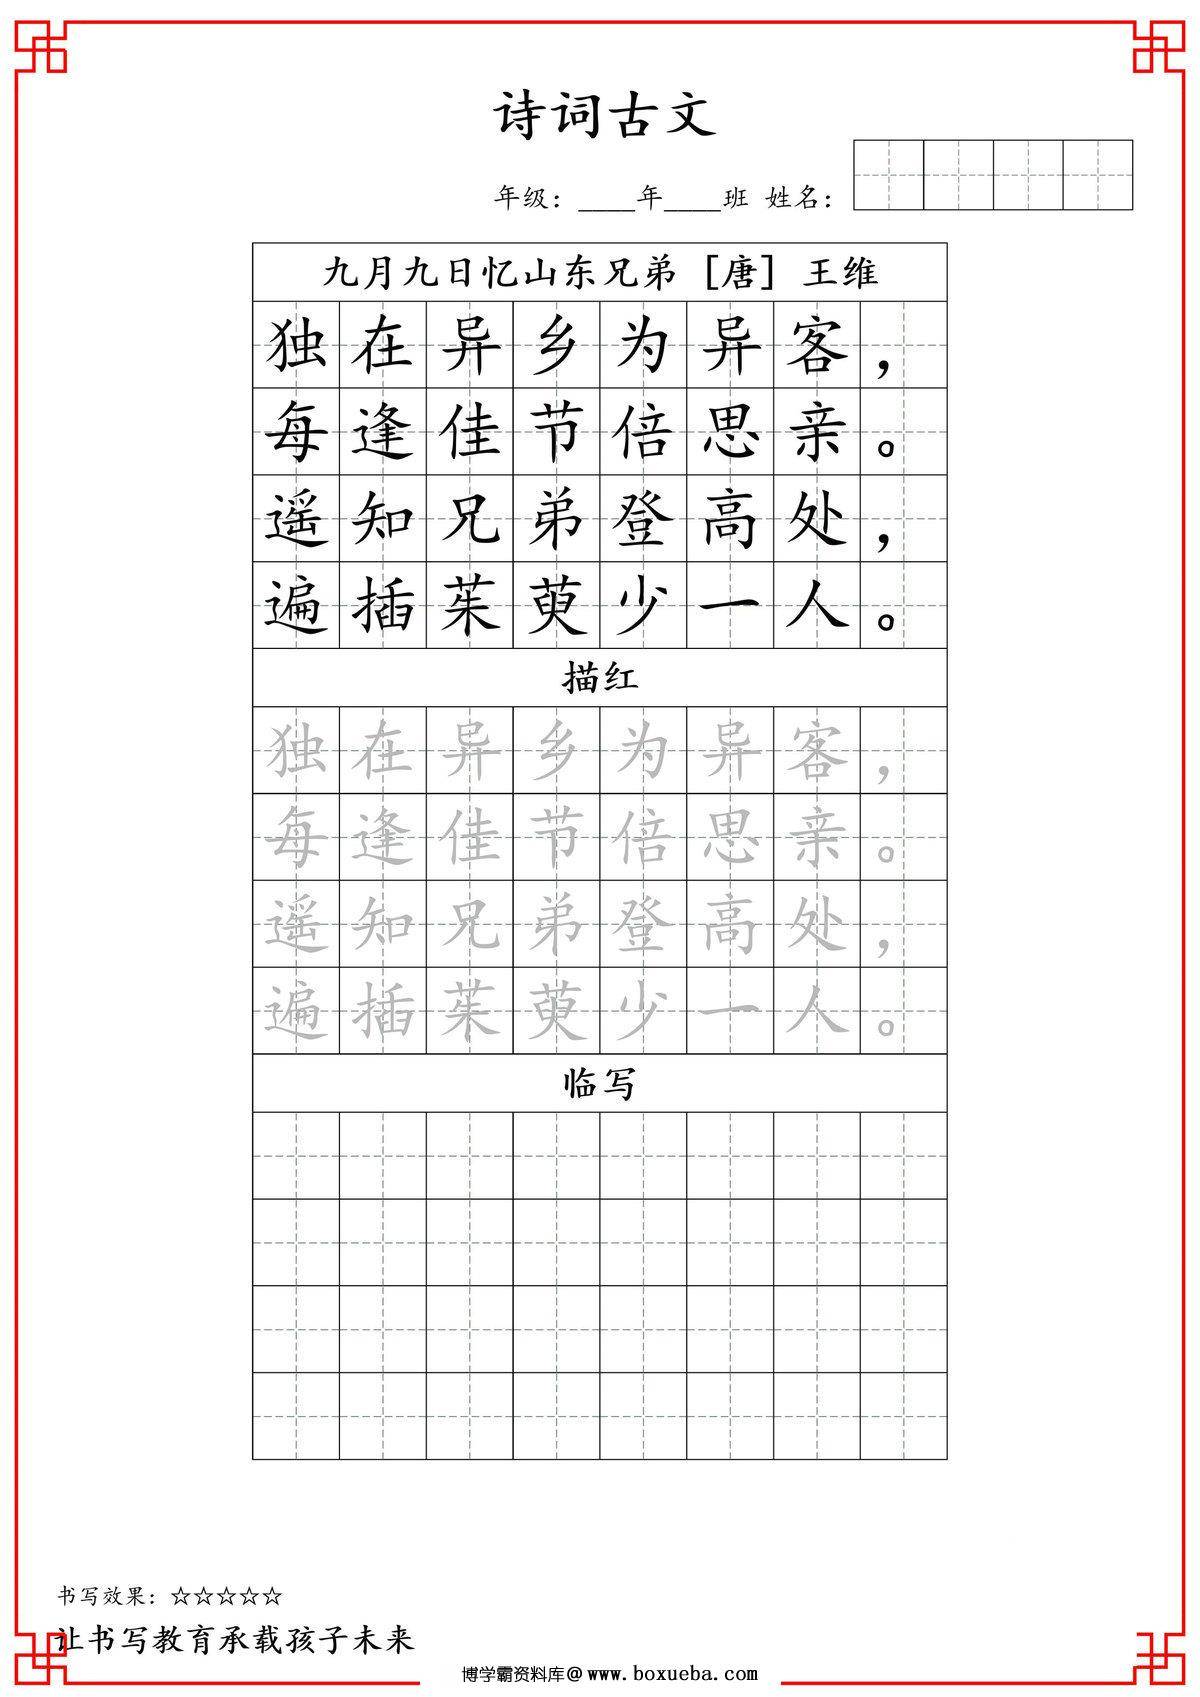 诗词古文
年级：____年____班 姓名：
九月九日忆山东兄弟 [唐] 王维
独在异乡为异客，
每逢佳节倍思亲。
遥知兄弟登高处，
遍插茱萸少一人。
描红
独在异乡为异客，
每逢佳节倍思亲。
遥知兄弟登高处，
遍插茱萸少一人。
临写
书写效果：☆☆☆☆☆
让书写教育承载孩子未来
博学霸资料库@www.boxueba.com